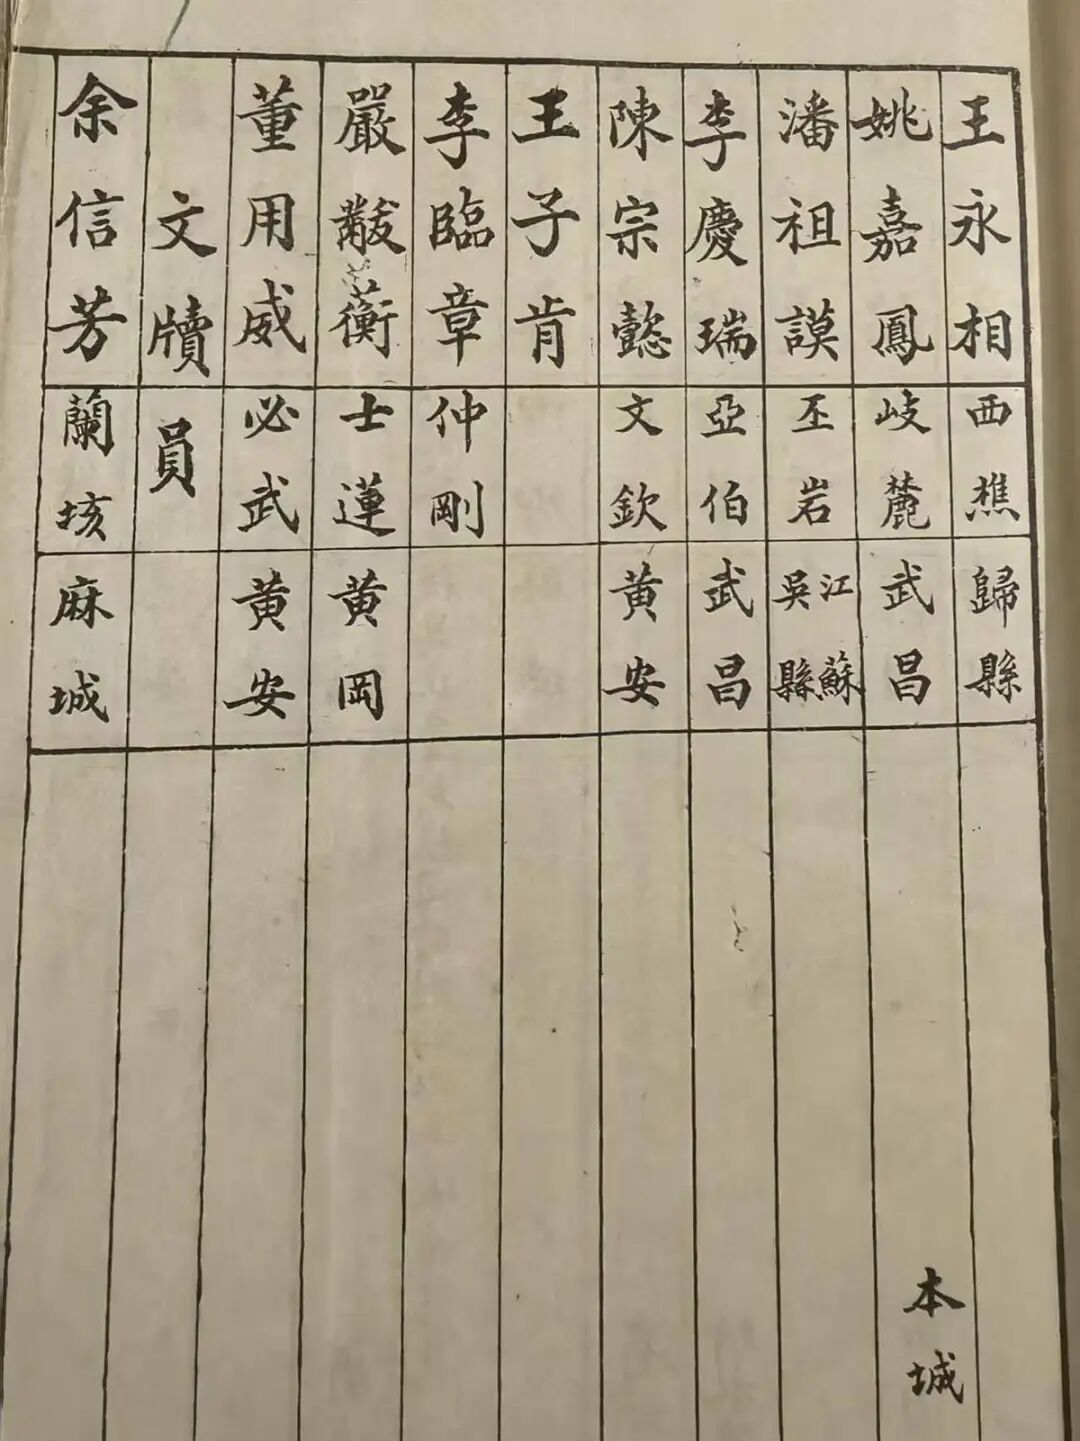 王永相 西樵 歸縣
姚嘉鳳 岐麓 武昌 本城
潘祖謨 丕岩 江蘇吳縣
李慶瑞 亞伯 武昌
陳宗懿 文欽 黄安
王子肯
李臨章 仲剛
嚴黻蘅 士蓮 黄岡
董用威 必武 黄安
文牘員
余信芳 蘭垓 麻城